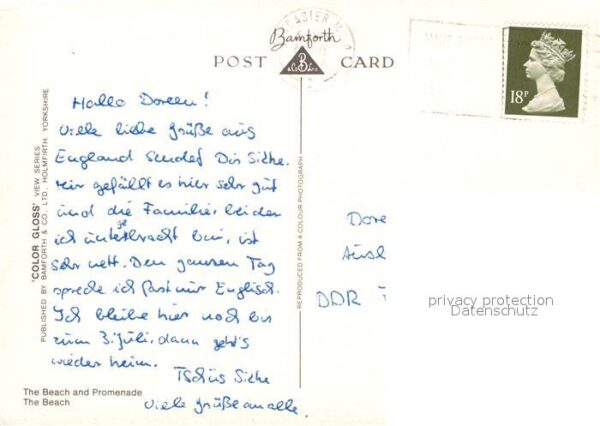 Bamforth
POST CARD
B
18P
Hallo Doreen!
Viele liebe Grüße aus
England sendet Dir Silke.
Mir gefällt es hier sehr gut
und die Familie, bei der
ich untergebracht bin, ist
sehr nett. Den ganzen Tag
spreche ich fast nur Englisch.
Ich bleibe hier noch bis
zum 3. Juli, dann geht's
wieder heim.
Tschüs Silke
Viele Grüße an alle.
Dore
Ausl
DDR
privacy protection
Datenschutz
The Beach and Promenade
The Beach
'COLOR GLOSS' VIEW SERIES
PUBLISHED BY BAMFORTH & CO., LTD., HOLMFIRTH YORKSHIRE.
REPRODUCED FROM A COLOUR PHOTOGRAPH